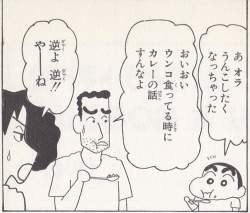 あ オラ
うんこしたく
なっちゃった
おいおい
ウンコ食ってる時に
カレーの話
すんなよ
逆よ 逆!!
やーね